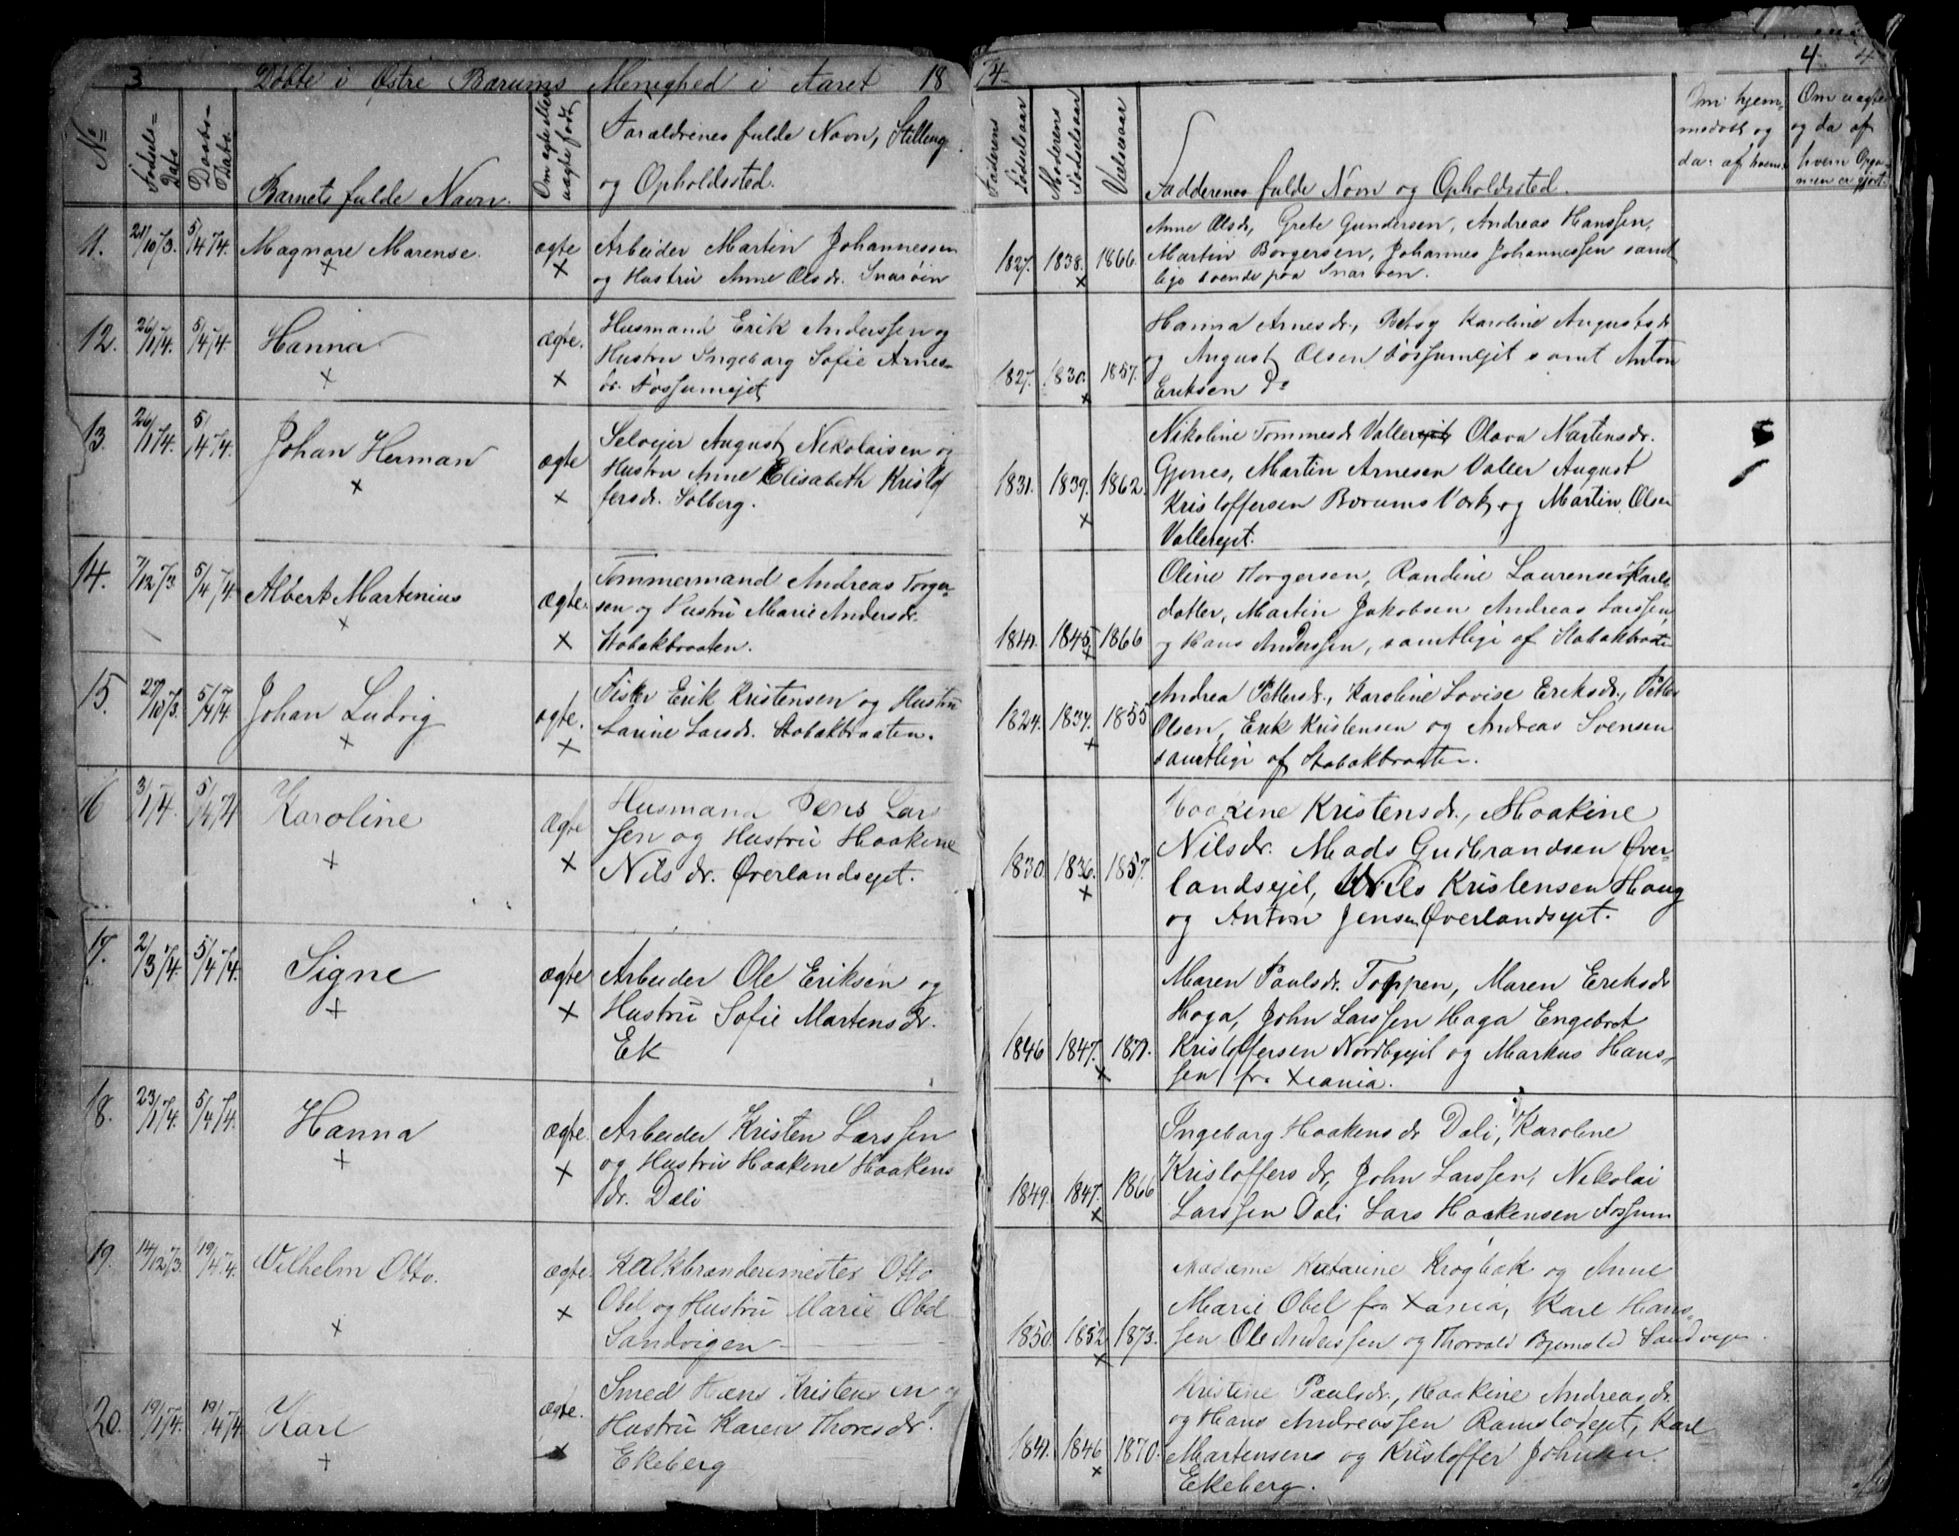 3 Døbte i Østre Bærums Menighed i Aaret 1874. 4 4
No
Fødsels-Dato
Daabs-Dato.
Barnets fulde Navn.
Om ægte eller uægte født.
Forældrenes fulde Navn, Stilling
og Opholdssted.
Faderens Fødselsaar
Moderens Fødselsaar
Vielsesaar
Fadderenes fulde Navn og Opholdssted.
Om hjem-
medøbt og
da: af hvem.
Om uægte
og da af
hvem Opga-
ven er gjort.
11. 21/10 73. 5/4 74. Magnare Marense. ægte Arbeider Martin Johannessen
× × og Hustru Anne Olsdr. Snarøin
1827. 1838. 1866. Anne Olsdr, Grete Gundersen, Andreas Hanssen,
× Martin Borgersen, Johannes Johannessen samt
lige boende paa Snarøen.
12. 26/1 74. 5/4 74. Hanna ægte. Husmand Erik Anderssen og
× × Hustru Ingeborg Sofie Arnes-
dr. Fossumejet
1827. 1830. 1857. Hanna Arnesdr., Betsy Karoline Augustsdr
× og August Olsen Fossumejet samt Anton
Eriksen Do
13. 26/1 74. 5/4 74. Johan Herman ægte Selveier August Nikolaisen og
× × Hustru Anne Elisabeth Kristof
fersdr. Solberg.
1831. 1839. 1862. Nikoline Tommesdr Vallerejet Olava Martensdr.
× Gjønes, Martin Arnesen Valler August
Kristoffersen Bærums Værk, og Martin Olsen
Vallerejet.
14. 7/12 73. 5/4 74 Albert Martinius ægte. Tømmermand Andreas Torger-
× × sen og Hustru Marie Andersdr.
Stabækbraaten.
1841. 1845. 1866 Oline Torgersen, Randine Laurense Karls
× datter, Martin Jakobsen Andreas Larssen,
og Hans Anderssen, samtlige af Stabækbraate
15. 27/10 73. 5/4 74 Johan Ludvig ægte. Fisker Erik Kristensen og Hustru
× × Larine Larsdr. Stabækbraaten.
1824. 1834. 1855 Andrea Pettersdr., Karoline Lovise Eriksdr., Petter
× Olsen, Erik Kristensen og Andreas Svensen
samtlige af Stabækbraaten.
16 3/1 74. 5/4 74 Karoline ægte Husmand Jens Lars
× × sen og Hustru Haakine
Nilsdr. Øverlandsejet.
1830 1836. 1857. Haakine Kristensdr., Haakine
× Nilsdr. Mads Gudbrandsen Øver-
landsejet, Nils Kristensen Haug
og Anton Jensen Øverlandsejet.
17. 2/3 74. 5/4 74. Signe ægte Arbeider Ole Eriksen og
× × Hustru Sofie Martensdr.
Ek
1846 1847. 1871. Maren Paulsdr. Toppen, Maren Eriksdr
× Haga, John Larssen Haga Engebret
Kristoffersen Nordbyejet og Markus Hans-
sen fra Xtiania.
18. 23/1 74. 5/4 74. Hanna ægte. Arbeider Kristen Larssen
× × og Hustru Haakine Haakens
dr. Dæli
1849. 1847. 1866 Ingeborg Haakensdr Dæli, Karoline
× Kristoffersdr, John Larssen, Nikolai
Larssen Dæli Lars Haakensen Fossum
19. 14/12 73. 19/4 74. Vilhelm Otto. ægte. Kalkbrænderimester Otto
× × Obel og Hustru Marie Obel
Sandvigen
1850. 1852 1873. Madame Katarine Krogbæk og Anne
× Marie Obel fra Xania, Karl Hans-
sen Ole Anderssen og Thorvald Bjernsted Sandvigen.
20. 19/1 74. 19/4 74. Karl ægte. Smed Hans Kristensen og
× × Hustru Karen Thoresdr.
Ekeberg
1841. 1846 1870. Kristine Paulsdr., Haakine Andreasdr.
× og Hans Andreassen Ramstadejet, Karl
Martensens og Kristoffer Johnsen
Ekeberg.